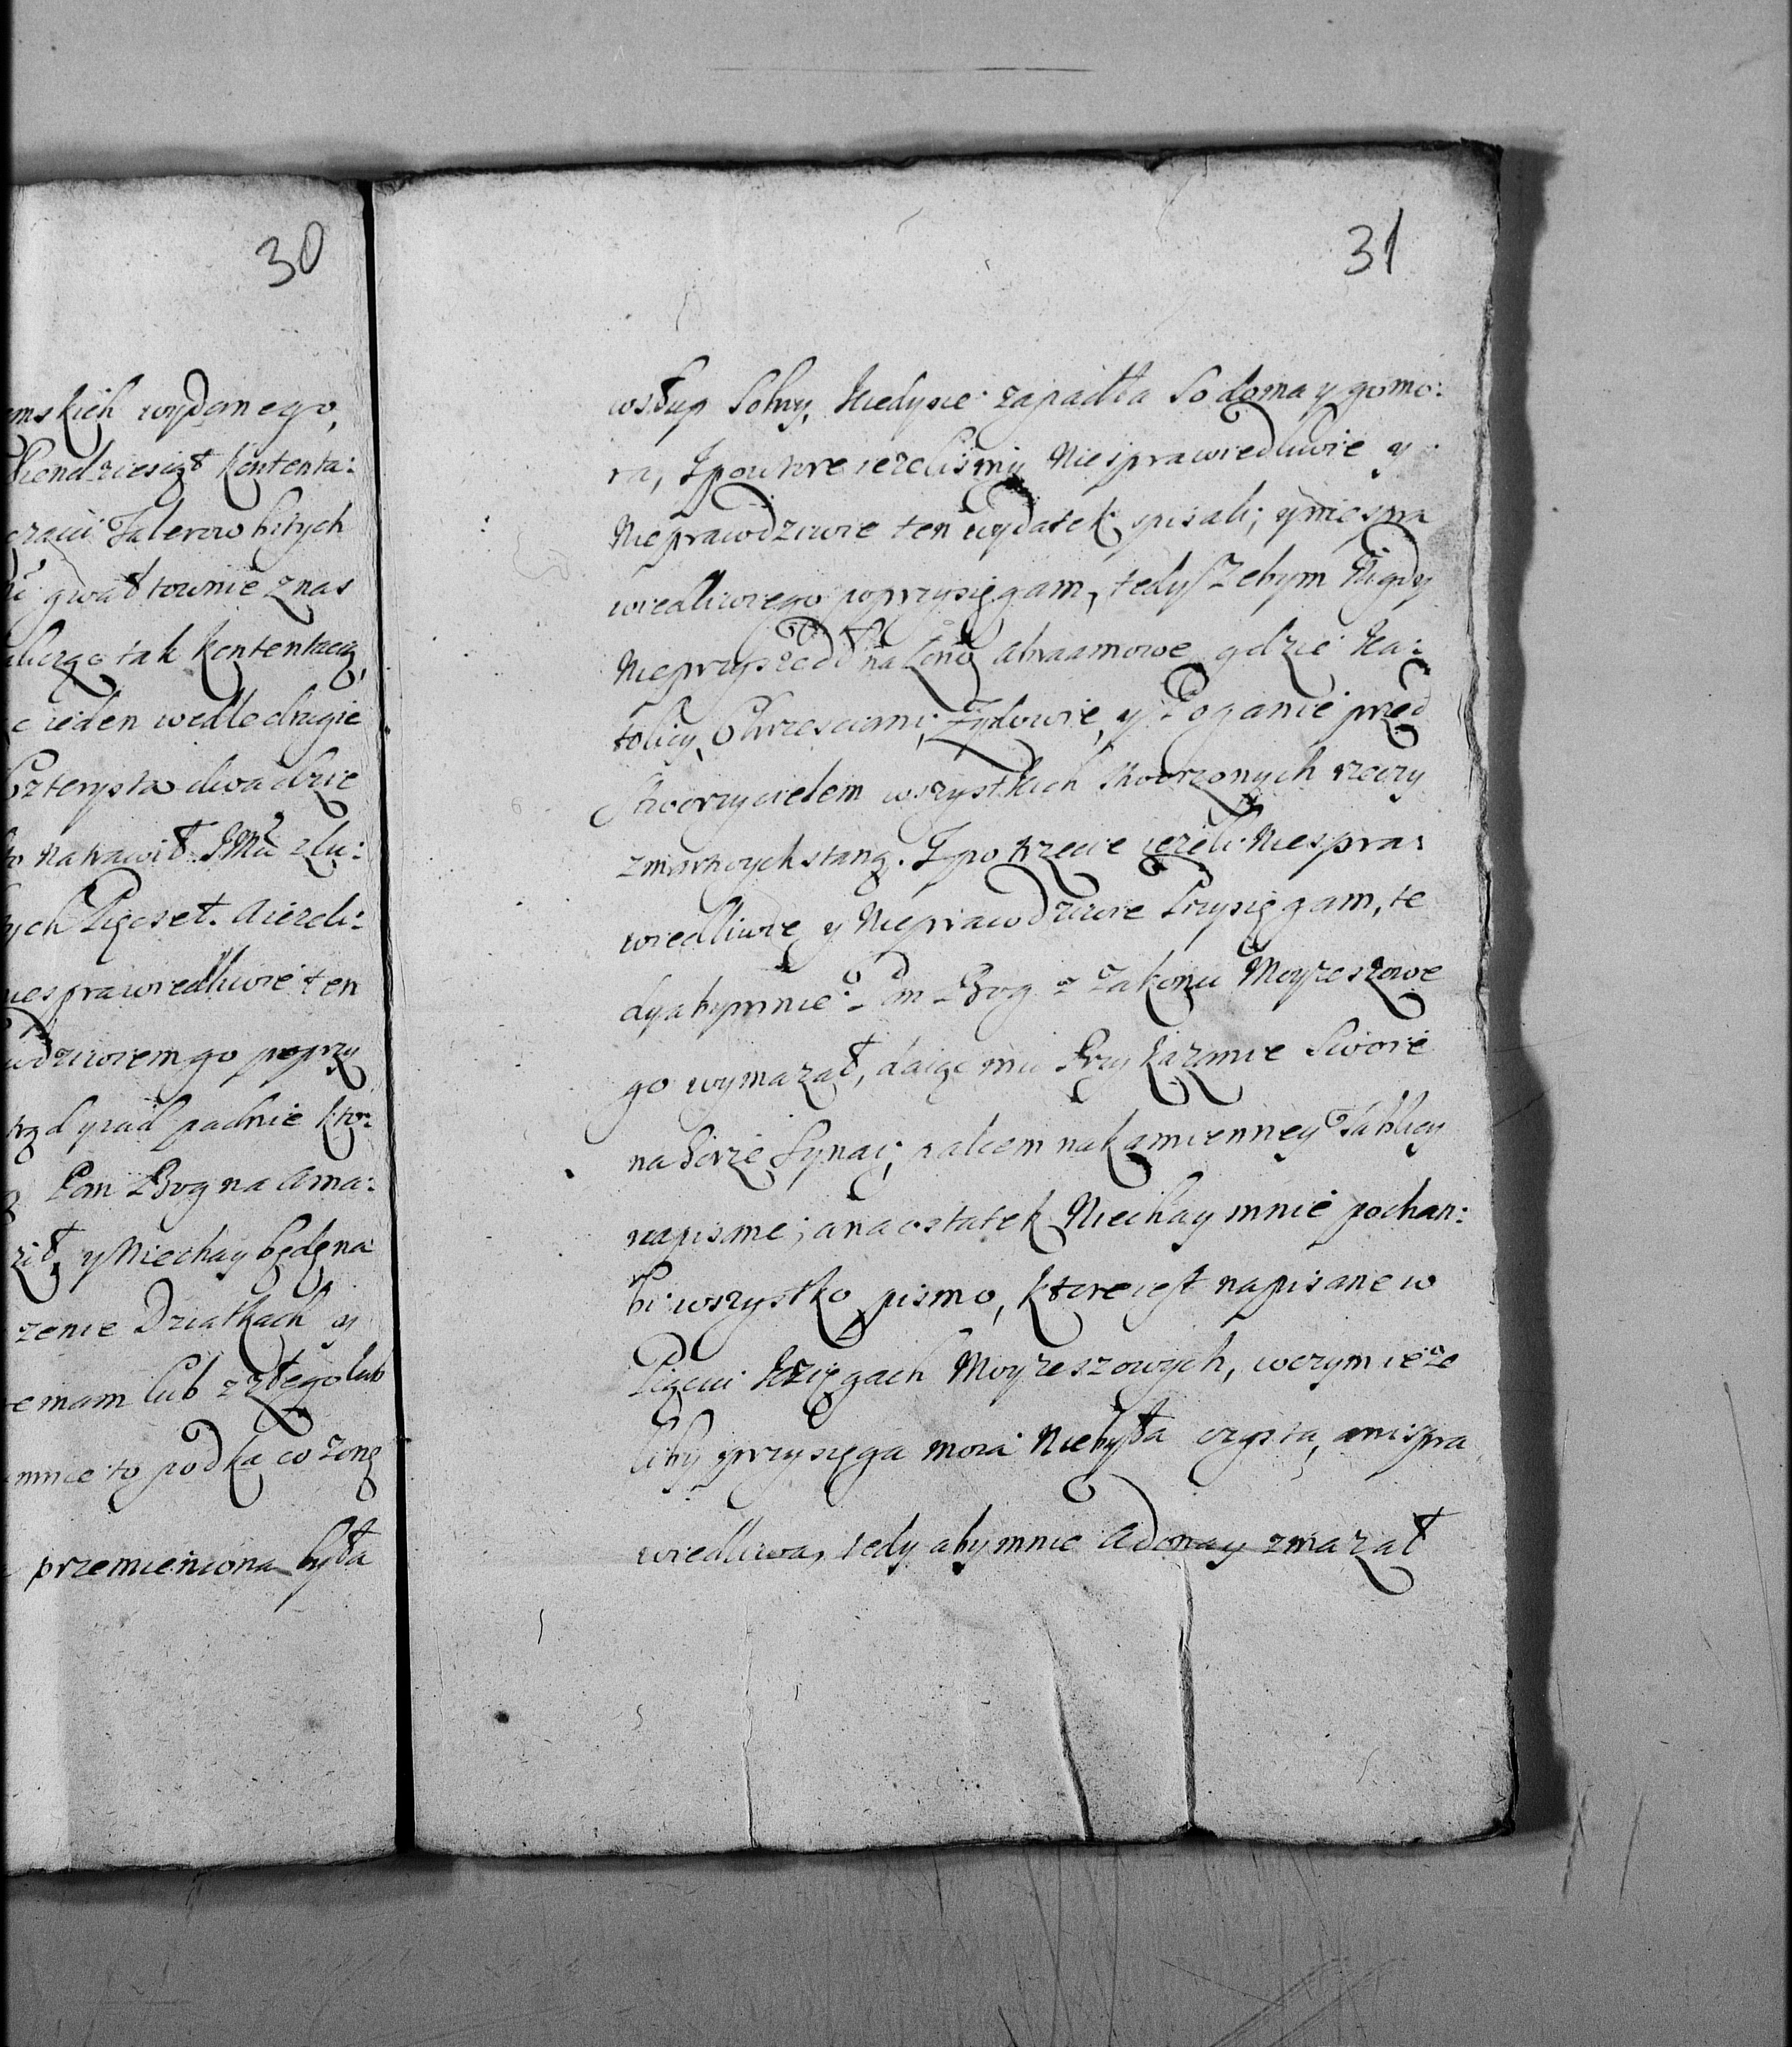 30
mskich wydanego,
Piendziesiąt kontenta:
Talerow bitych
gwałtownie znas
tak kontentacią,
ieden wedle drugie
Czterysta dwadzie
Natrawił JMci zlu:
ych Pięcset. A ieżeli:
niesprawiedliwie ten
wdziwiem go poprzy
trąd y rad padnie kto:
Pan Bog na Ama:
ził, y Niechay będę na
zenie Dziatkach y
emam lub z złego lub
mnie to podka, co żonę
przemieniona była
31
wsłup Solny, Kiedysie zapadła Sodoma y gomo:
ra, J powtore iezelismy Niesprawiedliwie y
Nieprawdziwie ten wydatek spisali; y niespra
wiedliwego poprzysięgam, tedy Zebym Nigdy
Nieprzyszedł na Łono abraamowe gdzie Ka:
tolicy, Chrzesciani, Żydowie, y Poganie przed
Stworzycielem wszystkich stworzonych rzeczy
zmartwychstaną. J po trzecie ieżeli Niespra:
wiedliwie y Nieprawdziwie Przysięgam, te
dy aby mnie Pan Bog z Zakonu Moyzeszowe
go wymazał, daiąc mu Przykazanie Swoie
na Górze Synai, palcem nakamienney Tablicy
napisane; anaostatek Niechay mnie pohan:
bi wszystko pismo, ktore iest napisane w
Pięciu Księgach Moyzeszowych, wczym ieże
liby przysięga moia Niebyła czysta, ani spra
wiedliwa, tedy aby mnie Adonay zmazał